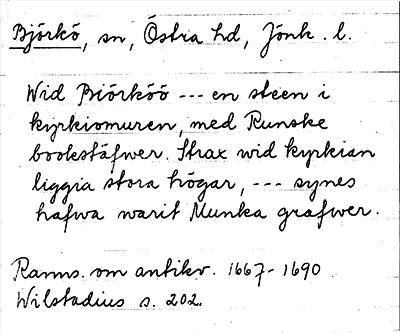 Björkö, sn, Östra hd, Jönk. l.
Wid Biörköö --- en steen i
kyrkiomuren, med Runske
bookstäfwer. Strax wid kyrkian
liggia stora högar, --- synes
hafwa warit Munka grafwer.
Ranns. om antikv. 1667-1690
Wilstadius s. 202.